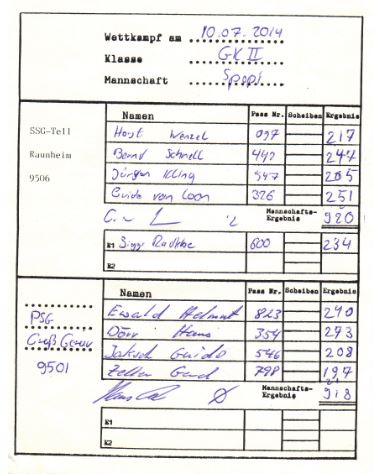 Wettkampf am 10.07.2014
Klasse GK II
Mannschaft Sppi
SSG-Tell
Raunheim
9506
Namen Pass Nr. Scheiben Ergebnis
Horst Wenzel 097 217
Bernd Schnell 442 247
Jürgen Kling 547 205
Guido van Loon 326 251
Mannschafts-
Ergebnis 920
E1 Siggi Radtke 600 234
E2
PSG
Groß Gerau
9501
Namen Pass Nr. Scheiben Ergebnis
Ewald Helmut 823 240
Dörr Hans 354 273
Jaksch Guido 546 208
Zeller Gerd 798 197
Mannschafts-
Ergebnis 918
E1
E2